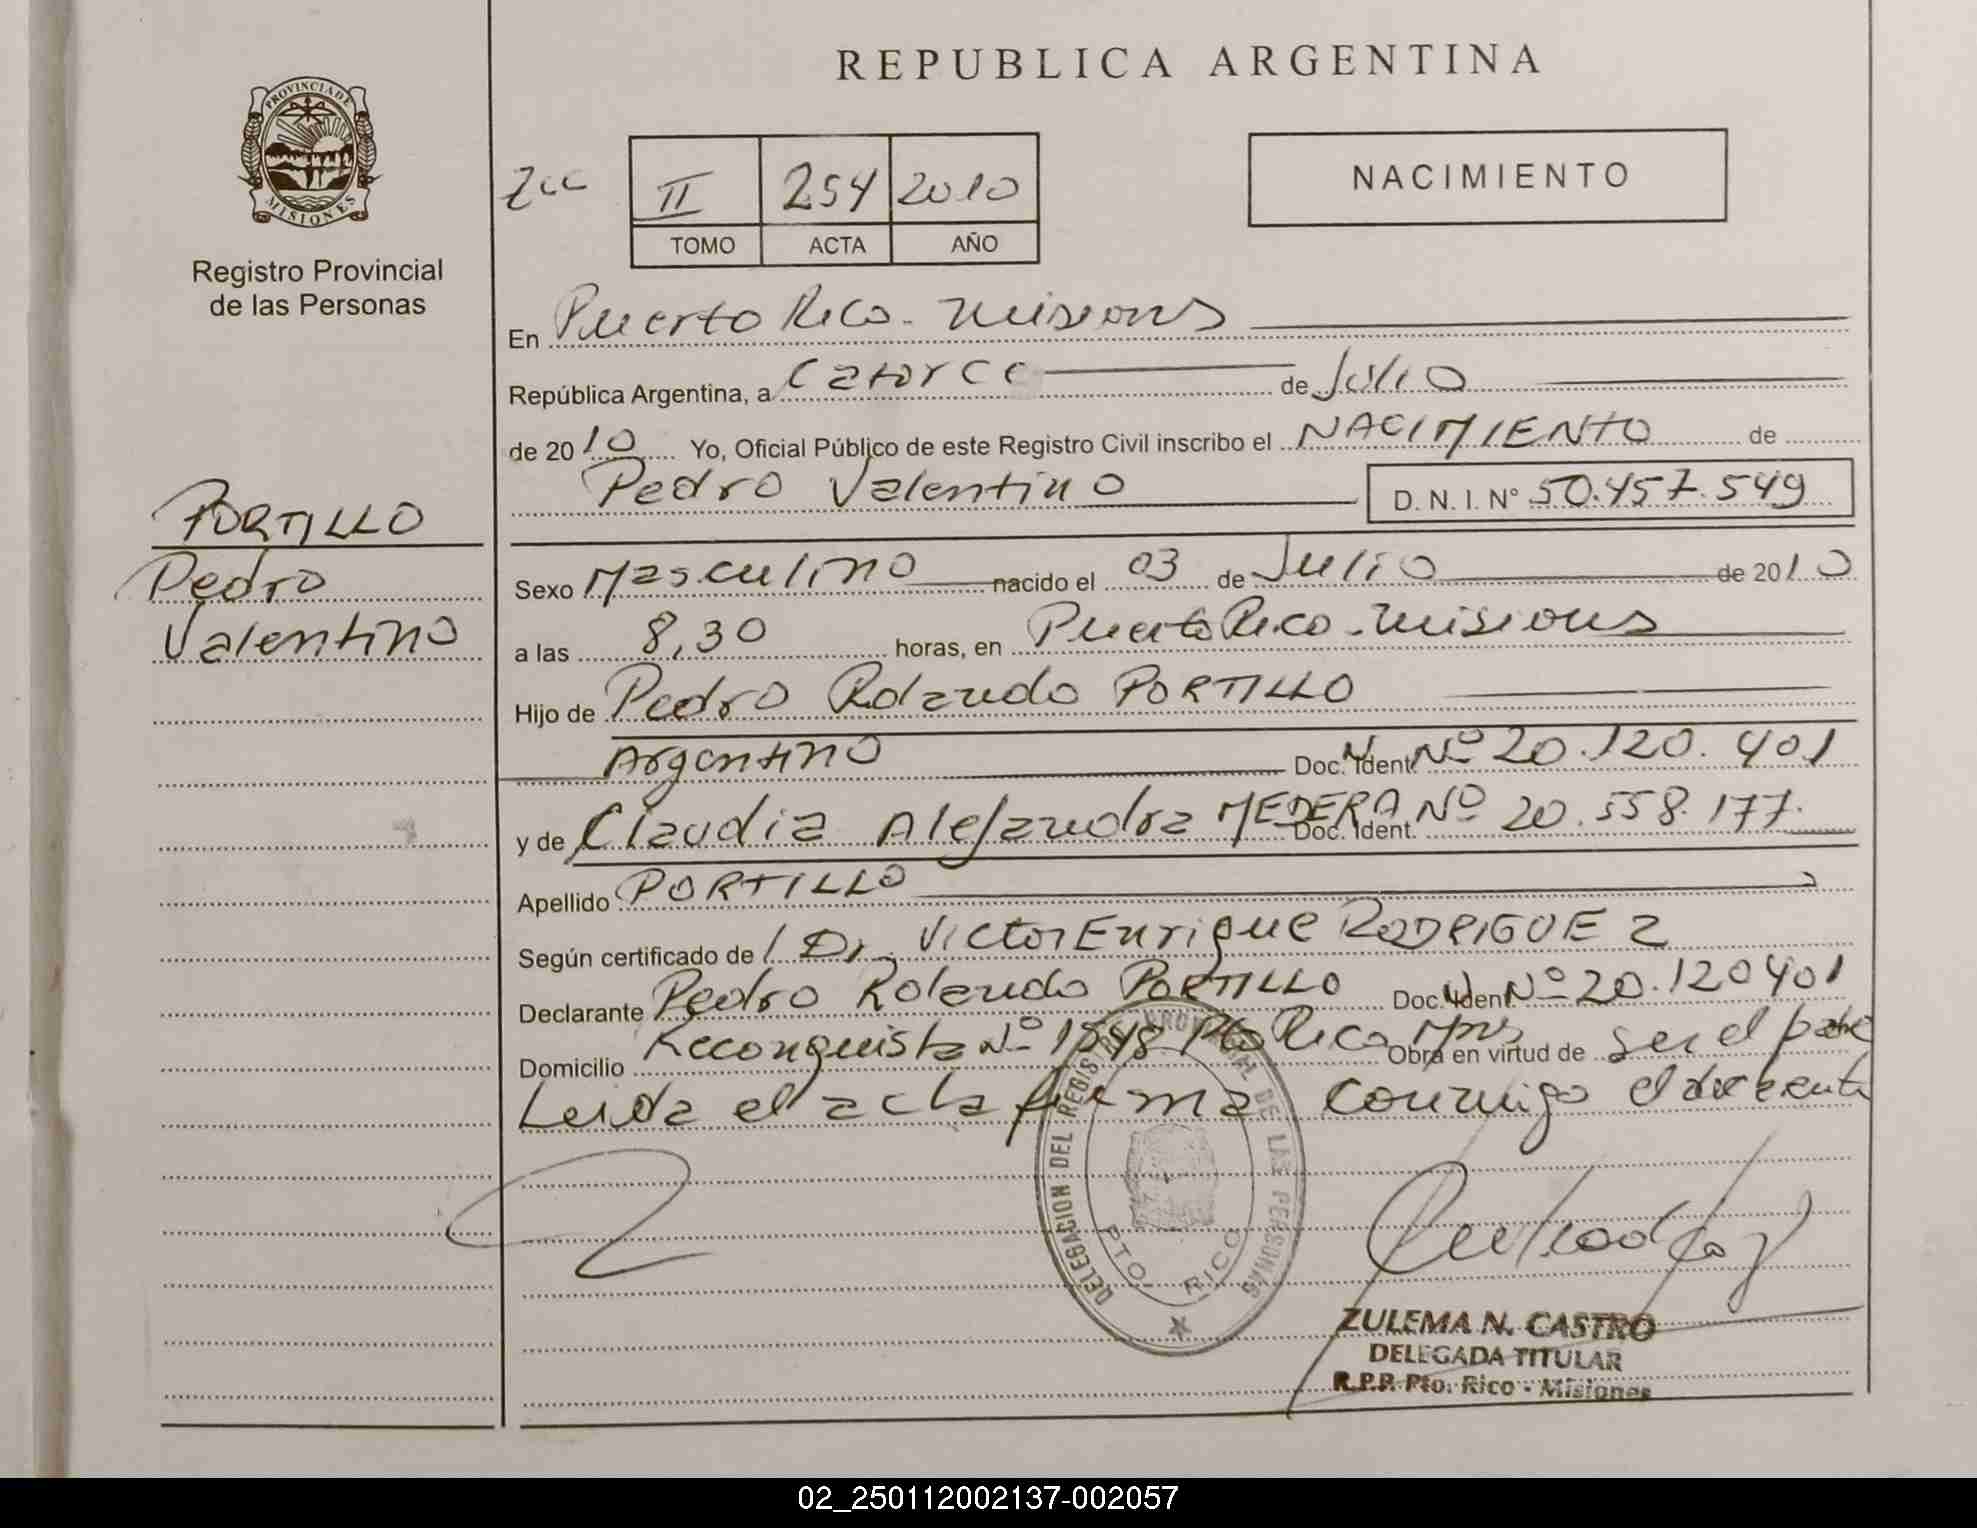 REPUBLICA ARGENTINA
PROVINCIA DE
MISIONES
Registro Provincial
de las Personas
II 254 2010
TOMO ACTA AÑO
NACIMIENTO
En Puerto Rico - Misiones
República Argentina, a Catorce de Julio
de 2010 Yo, Oficial Público de este Registro Civil inscribo el NACIMIENTO de
Pedro Valentino D. N. I. N° 50.457.549
PORTILLO
Pedro
Valentino
Sexo Masculino nacido el 03 de Julio de 2010
a las 8,30 horas, en Puerto Rico - Misiones
Hijo de Pedro Rolando PORTILLO
Argentino Doc. Ident. Nº 20.120.401
y de Claudia Alejandra MEDERA Doc. Ident. Nº 20.558.177.
Apellido PORTILLO
Según certificado de Dr. Victor Enrique RODRIGUEZ
Declarante Pedro Rolando PORTILLO Doc. Ident. Nº 20.120401
Domicilio Reconquista Nº 1548 Pto Rico Mnes Obra en virtud de ser el padre
Leida el acta firma conmigo el
DELEGACION DEL REGISTRO PROVINCIAL DE LAS PERSONAS
PTO. RICO
ZULEMA N. CASTRO
DELEGADA TITULAR
R.P.P. Pto. Rico - Misiones
02_250112002137-002057